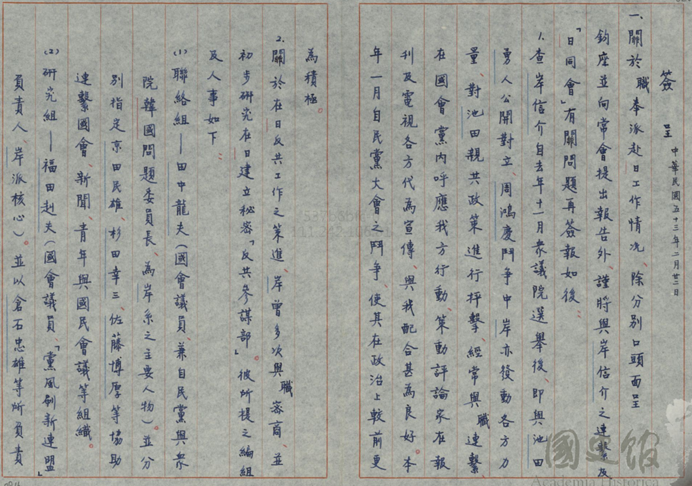 簽呈 中華民國五十三年二月廿三日
一、關於職奉派赴日工作情況，除分別口頭面呈
鈞座並向常會提出報告外，謹將與岸信介之連繫及
「日同會」有關問題再簽報如後
1.查岸信介自去年十一月衆議院選舉後，即與池田
勇人公開對立，周鴻慶鬥爭中岸亦發動各方力
量，對池田親共政策進行抨擊，經常與職連繫，
在國會黨內呼應我方行動，策動評論家在報
刊及電視各方代為宣傳，與我配合甚為良好。本
年一月自民黨大會之鬥爭，使其在政治上較前更
為積極。
2.關於在日反共工作之策進，岸曾多次與職密商，並
初步研究在日建立秘密「反共參謀部」，彼所提之編組
及人事如下：
(1)聯絡組——田中龍夫（國會議員，兼自民黨與衆
院韓國問題委員長，為岸系之主要人物）並分
別指定京田民雄、杉田幸三、佐藤博厚等協助
連繫國會、新聞、青年與國民會議等組織。
(2)研究組——福田赳夫（國會議員，「黨風刷新連盟」
負責人，岸派核心）。並以倉石忠雄等所負責
國史館
Academia Historica